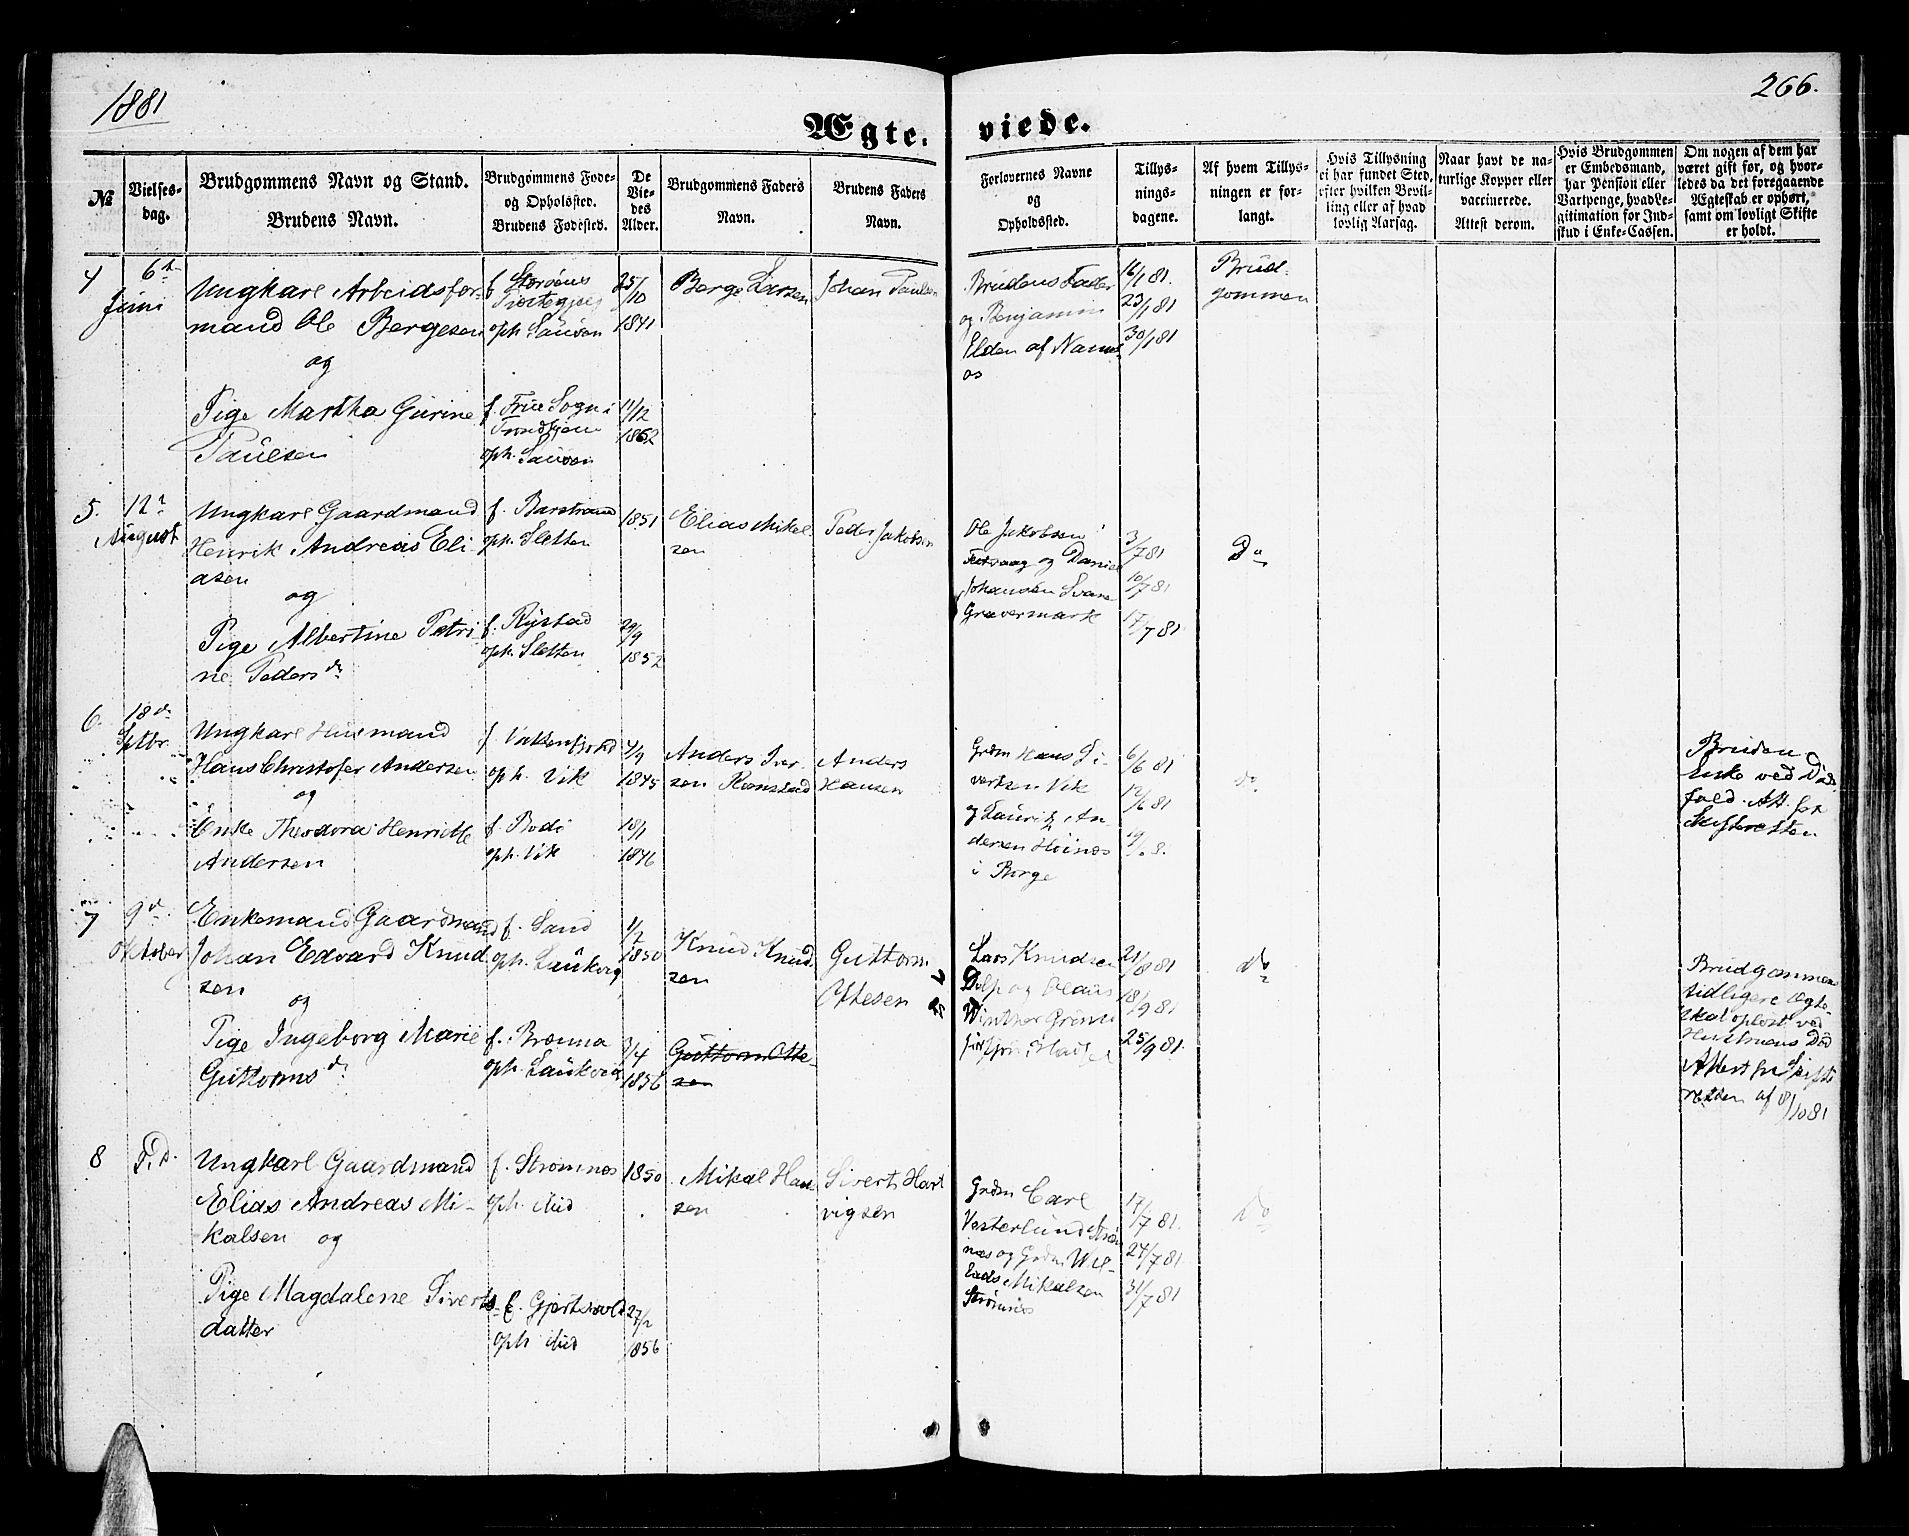 1881
266.
Ægte. viede.
№
Vielses-
dag.
Brudgommens Navn og Stand.
Brudens Navn.
Brudgommens Føde-
og Opholdsted.
Brudens Fødested.
De
Vie-
des
Alder.
Brudgommens Faders
Navn.
Brudens Faders
Navn.
Forlovernes Navne
og
Opholdssted.
Tillys-
nings-
dagene.
Af hvem Tillys-
ningen er for-
langt.
Hvis Tillysning
ei har fundet Sted,
efter hvilken Bevil-
ling eller af hvad
lovlig Aarsag.
Naar havt de na-
turlige Kopper eller
vaccinerede.
Attest derom.
Hvis Brudgommen
er Embedsmand,
har Pension eller
Vartpenge, hvad Le-
gitimation for Ind-
skud i Enke-Cassen.
Om nogen af dem har
været gift før, og hvor-
ledes da det foregaaende
Ægteskab er ophørt,
samt om lovligt Skifte
er holdt.
4
6te
Juni
Ungkarl Arbeidsfor-
mand Ole Bergesen
og
Pige Martha Gurine
Paulsen
f. Storøens
oph. Lauvøen
f. Frue Sogn i
Trondhjem
oph. Lauvøen
25/10
1841
11/12
1862
Berge Larsen
Johan Paulsen
Brudens Fader
og Benjamin
Elden af Nams
os
16/1 81.
23/1 81
30/1 81
Brud-
gommen
5.
12te
August
Ungkarl Gaardmand
Henrik Andreas Eli
asen
og
Pige Albertine Petri
ne Pedersdr
f. Barstrand
oph. Sletten
f. Rystad
oph. Sletten
1851
29/9
1852
Elias Mikel
sen
Peder Jakobsen
Ole Jakobsen
og Daniel
Johansen Svane
Grevermark
3/7 81
10/7 81
17/7 81
Do
6.
18de
Septbr.
Ungkarl Husmand
Hans Christofer Andersen
og
Enke Theodora Henriette
Andersen
f. Vatterfjord
oph. Vik
f. Bodø
oph. Vik
4/9
1845
18/1
1846
Anders Iver
sen Ramstad
Anders
Hansen
Grdm Hans Si-
vertsen Vik
og Lauritz An
dersen Høines
i Borge
6/6 81
12/6 81
19/6 8.
do
Bruden
Enke ved Døds
fald. Att. fra
Skifteretten
7
9de
Oktober
Enkemand Gaardmand
Johan Edvard Knud
sen
og
Pige Ingeborg Marie
Guttormsdr
f. Sand
oph. Laukvig
f. Brenna
oph. Laukvig
1/2
1850
3/4
1856
Knud Knud
sen
Guttorm Otte-
sen
Guttorm
Ottesen
Lars Knudsen
Dolp og Olaus
Winther Grim
fjord i Hadsel
21/8 81
18/9 81
25/9 81.
do
Brudgommens
tidligere Ægte
skab opløst ved
Hustruens Død
Attest fra Skifte
retten af 8/10 81
8
S.D.
Ungkarl Gaardmand
Elias Andreas Mi-
kalsen og
Pige Magdalene Siverts
datter
f. Strømnes
oph. Aud
f. Gjertsvold
oph Aud
1850
27/2
1856
Mikal Han
sen
Siverts Hart
vigsen
Grdm Carl
Vesterlund Strøm
nes og Grdm Wil-
lads Mikalsen
Strømnes
17/7 81.
24/7 81
31/7 81
Do